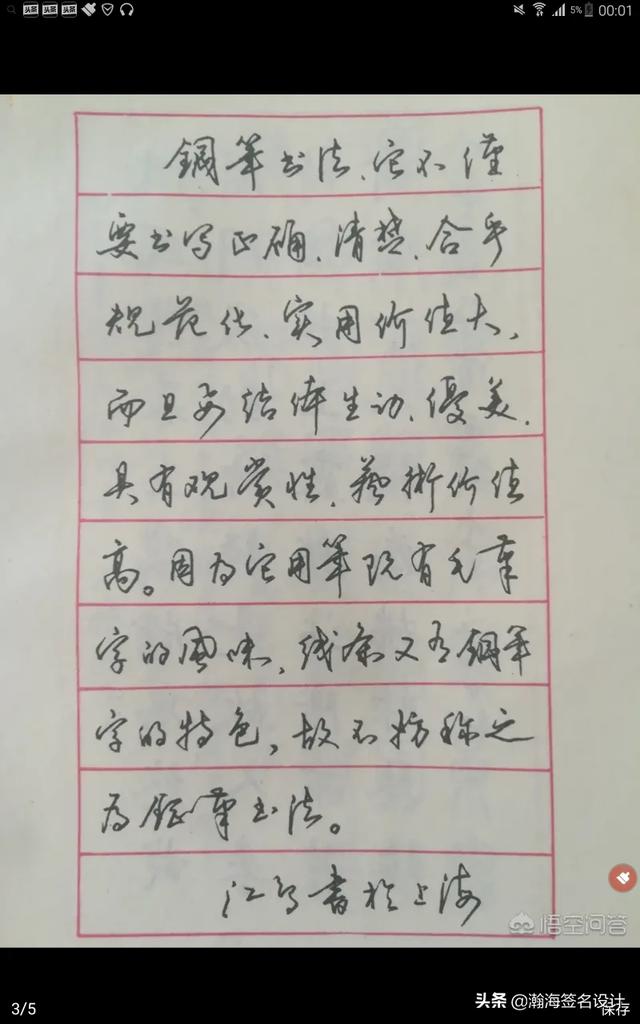 头条 头条 头条 5% 00:01
鋼筆书法、它不僅
要书写正确、清楚、合乎
规范化、实用价值大,
而且要结体生动、優美、
具有观赏性、藝術价值
高。因为它用筆既有毛筆
字的风味,线条又有鋼筆
字的特色,故不妨称之
为鋼筆书法。
江鸟書於上海
悟空问答
3/5
头条 @瀚海签名设计
保存